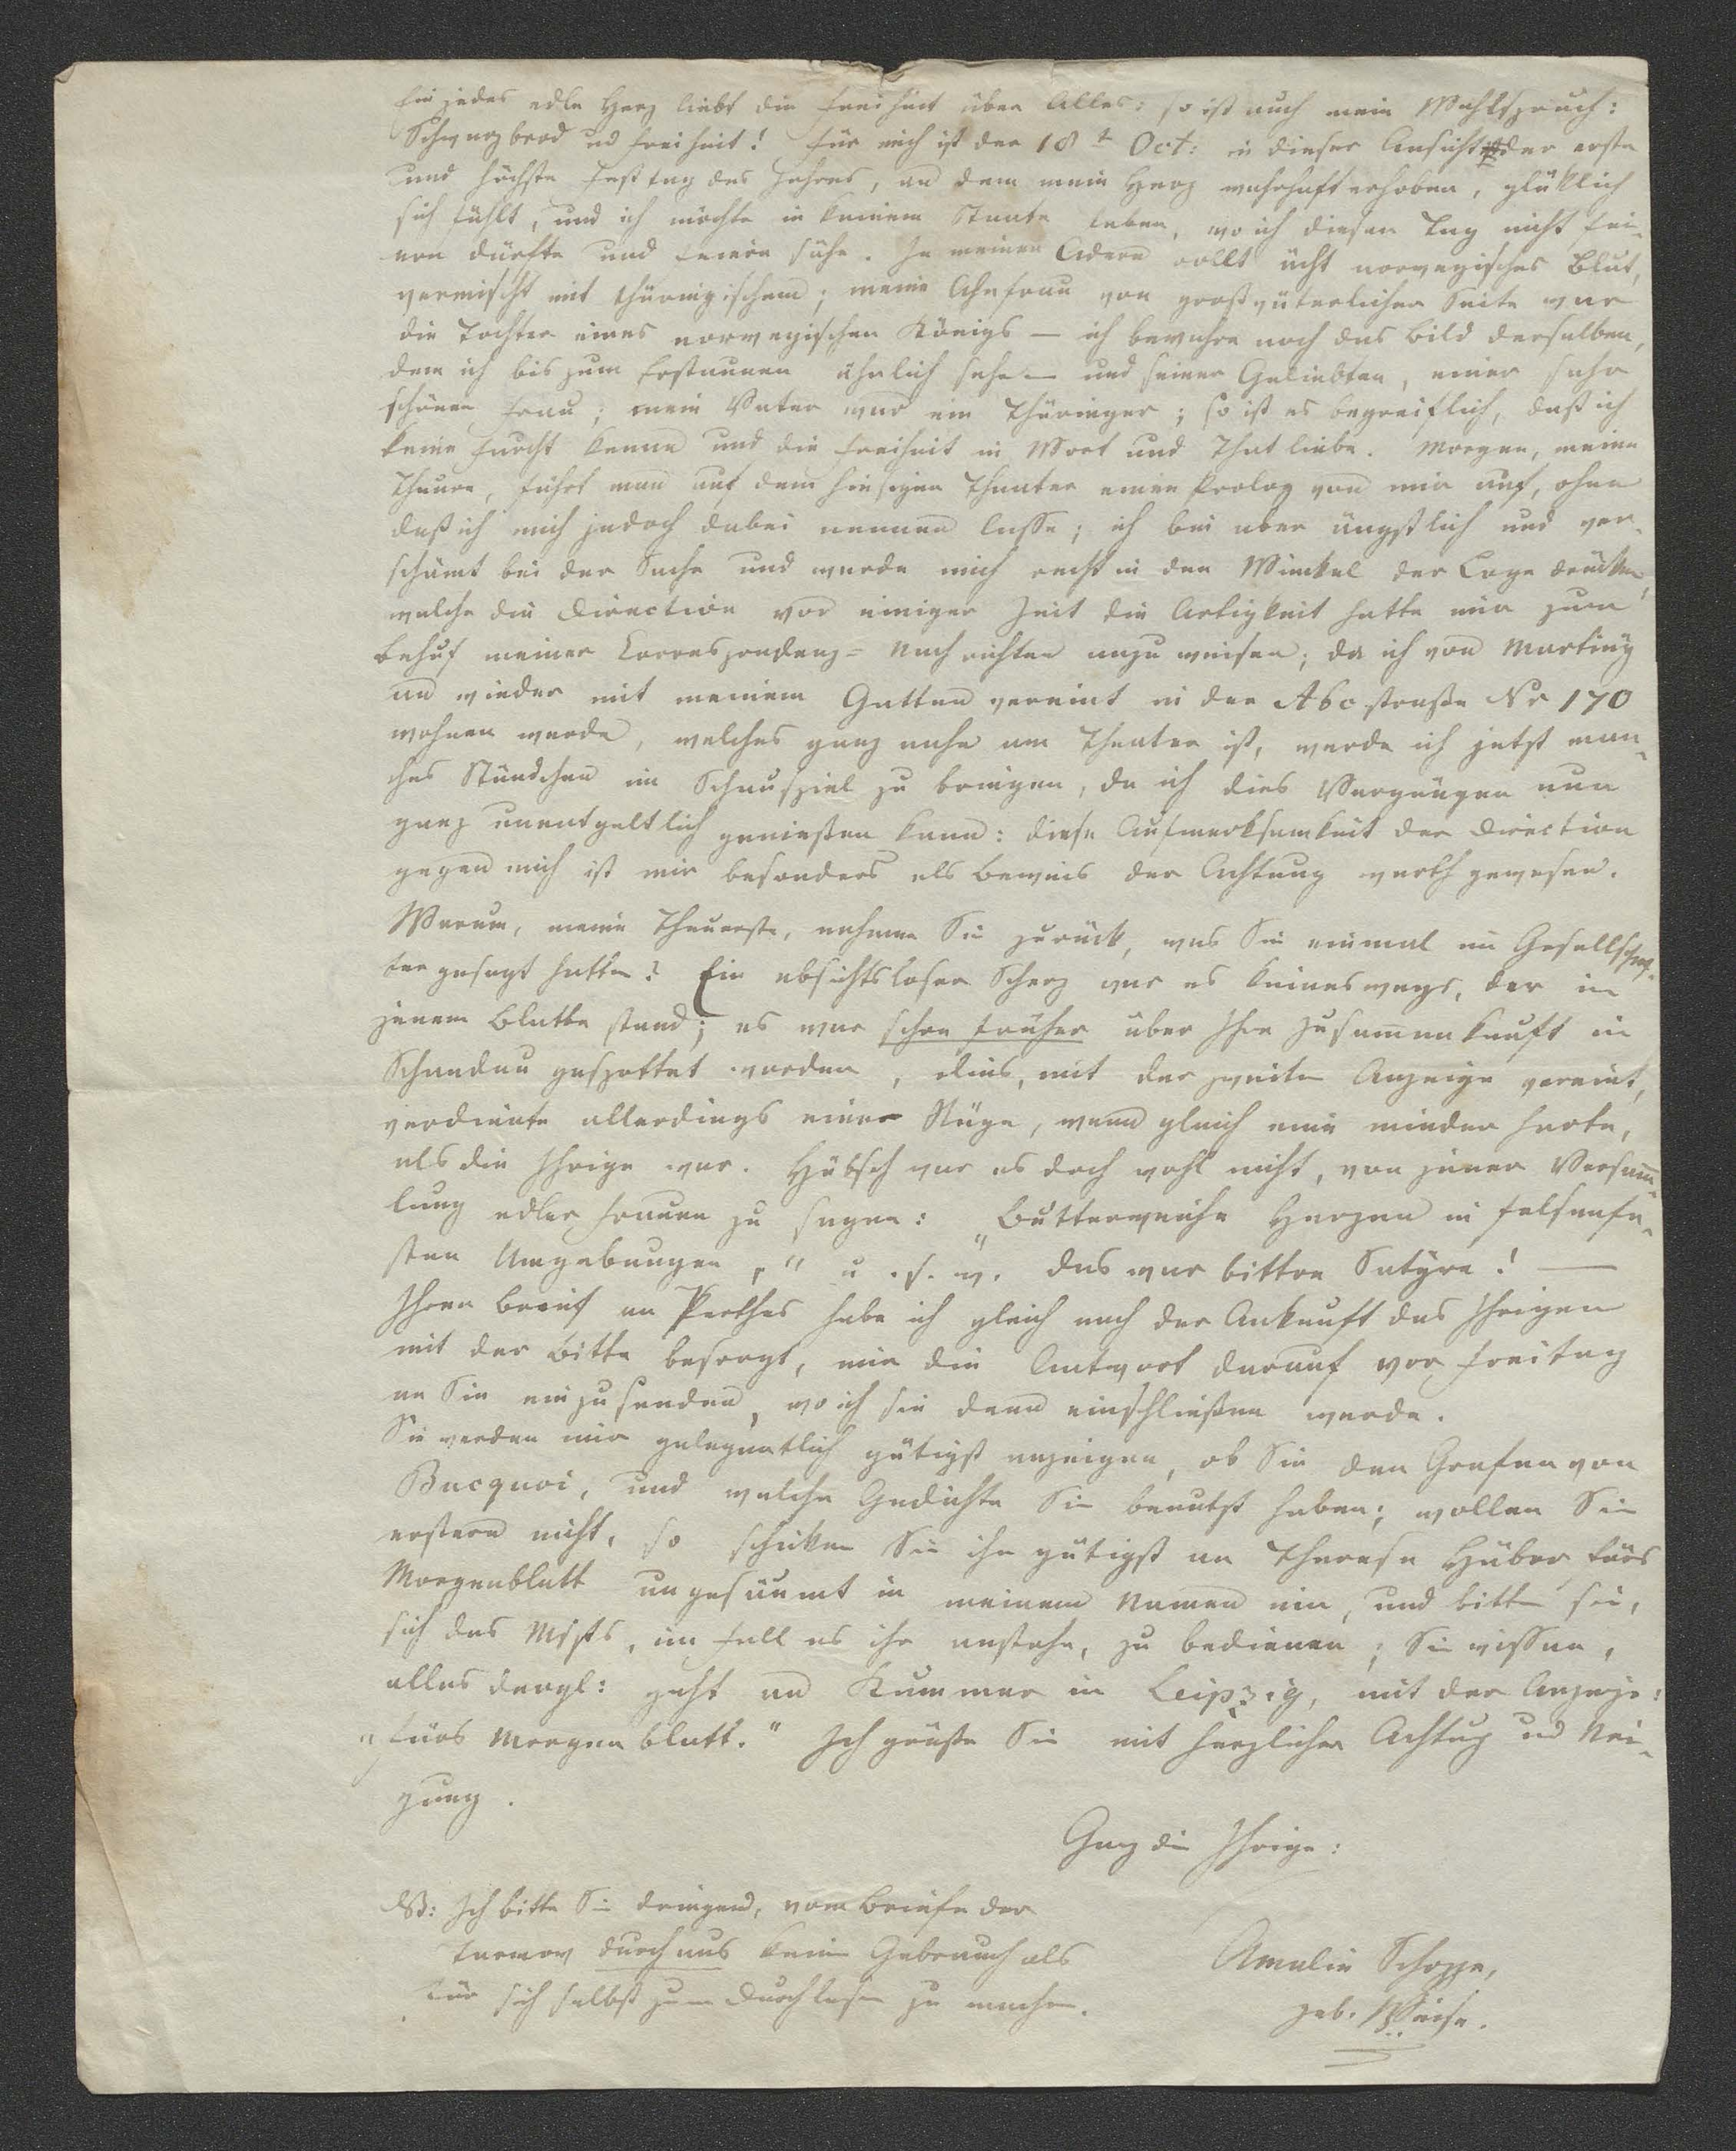 Ein jedes edle Herz liebt die Freiheit über Alles: so ist auch mein Wahlspruch:
Schwarzbrod und Freiheit! Für mich ist der 18t Oct: in dieser Ansicht der erste
und höchste Festtag des Jahres, an dem mein Herz wahrhaft erhoben, glüklich
sich fühlt, und ich möchte in keinem Staate leben, wo ich diesen Tag nicht fei-
ern dürfte und feiern sähe. In meinen Adern rollt ächt norwegisches Blut,
vermischt mit thüringischem; meine Ahnfrau von großväterlicher Seite war
die Tochter eines norwegischen Königs — ich bewahre noch das Bild derselben,
dem ich bis zum Erstaunen ähnlich sehe — und seiner Geliebten, einer sehr
schönen Frau; mein Vater war ein Thüringer; so ist es begreiflich, daß ich
keine Furcht kenne und die Freiheit in Wort und That liebe. Morgen, meine
Theure, führt man auf dem hiesigen Theater einen Prolog von mir auf, ohne
daß ich mich jedoch dabei nennen lasse; ich bin aber ängstlich und ver-
schämt bei der Sache und werde mich recht in den Winkel der Loge drücken,
welche die Direction vor einiger Zeit die Artigkeit hatte mir zum
Behuf meiner Correspondenz-Nachrichten anzuweisen; da ich von Martiny
an wieder mit meinem Gatten vereint in der Abcstraße Nr 170
wohnen werde, welches ganz nahe am Theater ist, werde ich jetzt man-
ches Stündchen im Schauspiel zu bringen, da ich dies Vergnügen nun
ganz unentgeltlich genießen kann: diese Aufmerksamkeit der Direction
gegen mich ist mir besonders als Beweis der Achtung werth gewesen.
Warum, meine Theuerste, nehmen Sie zurück, was Sie einmal im Gesellschaf-
ter gesagt hatten? Ein absichtsloser Scherz war es keineswegs, der in
jenem Blatte stand; es war schon früher über Ihre Zusammenkunft in
Schandau gespottet worden, dies, mit der zweiten Anzeige vereint,
verdiente allerdings einer Rüge, wenn gleich eine minder harte,
als die Ihrige war. Hübsch war es doch wohl nicht, von jener Versamm-
lung edler Frauen zu sagen: „Butterweiche Herzen in felsenfe-
sten Umgebungen," u. s. w. das war bittre Satyre! —
Ihren Brief an Perthes habe ich gleich nach der Ankunft des Ihrigen
mit der Bitte besorgt, mir die Antwort darauf vor Freitag
an Sie einzusenden, wo ich sie dann einschließen werde.
Sie werden mir gelegentlich gütigst anzeigen, ob Sie den Grafen von
Bucquoi, und welche Gedichte Sie benutzt haben; wollen Sie
erstern nicht, so schicken Sie ihn gütigst an Therese Huber fürs
Morgenblatt ungesäumt in meinem Namen ein, und bitten sie,
sich des Mspts, im Fall es ihr anstehe, zu bedienen; Sie wissen,
alles dergl: geht an Kummer in Leipzig, mit der Anzeige:
„fürs Morgenblatt." Ich grüße Sie mit herzlicher Achtung und Nei-
gung.
Ganz die Ihrige:
NB: Ich bitte Sie dringend, vom Briefe der
Tarnow durchaus keinen Gebrauch als
für sich selbst zum Durchlesen zu machen.
Amalie Schoppe,
geb. Weise.